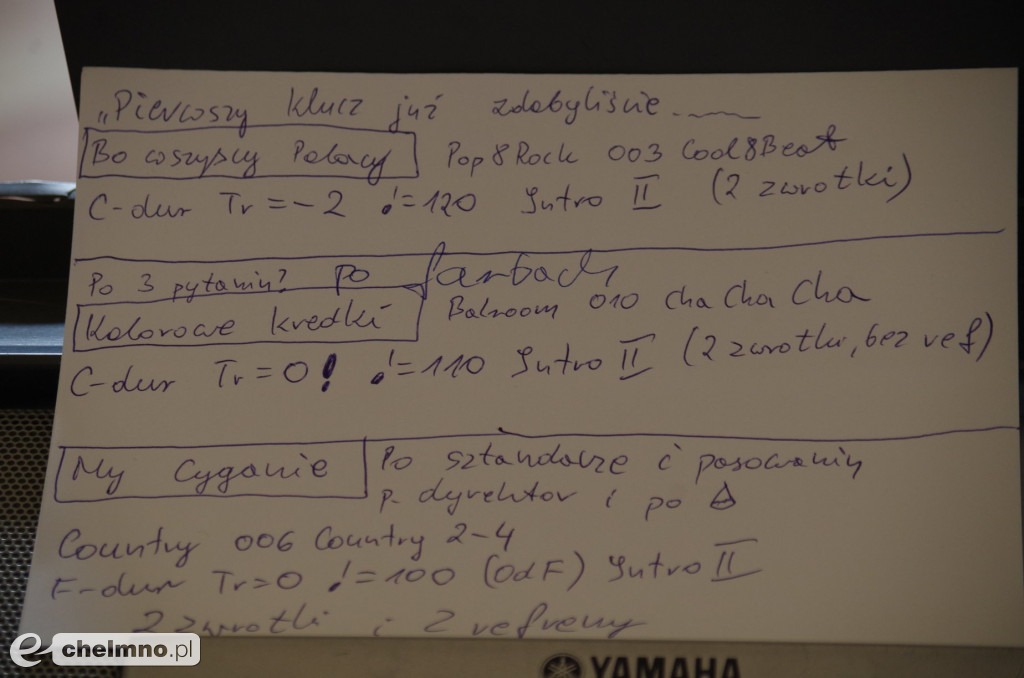 „Pierwszy klucz już zdobyliście....
Bo wszyscy Polacy Pop8Rock 003 Cool8Beat
C-dur Tr=-2 !=120 Intro II (2 zwrotki)
Po 3 pytaniu? po farbach
Kolorowe kredki Balroom 010 Cha Cha Cha
C-dur Tr=0! !=110 Intro II (2 zwrotki, bez ref)
My Cyganie Po sztandarze i pasowaniu
p. dyrektor i po
Country 006 Country 2-4
F-dur Tr=0 !=100 (OdF) Intro II
2 zwrotki i 2 refreny
e chelmno.pl
YAMAHA